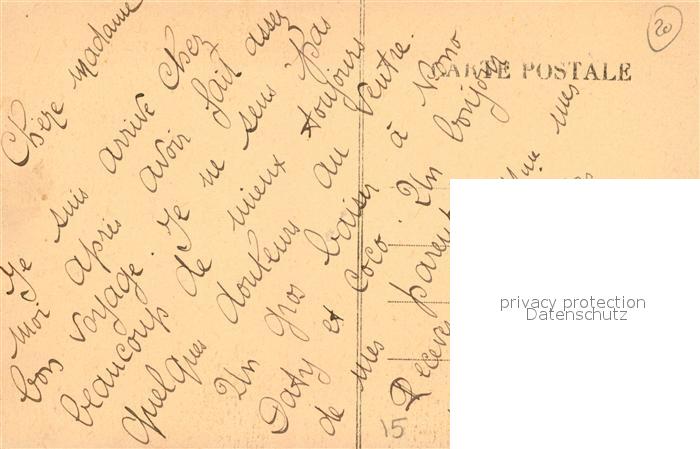 CARTE POSTALE
20
Chère madame
Je suis arrivé chez
moi après avoir fait assez
bon voyage. Je ne sens pas
beaucoup de mieux toujours
quelques douleurs au ventre.
Un gros baiser à Nono
Daty et Coco. Un bonjour
de mes parents
Recevez mes
15
privacy protection
Datenschutz